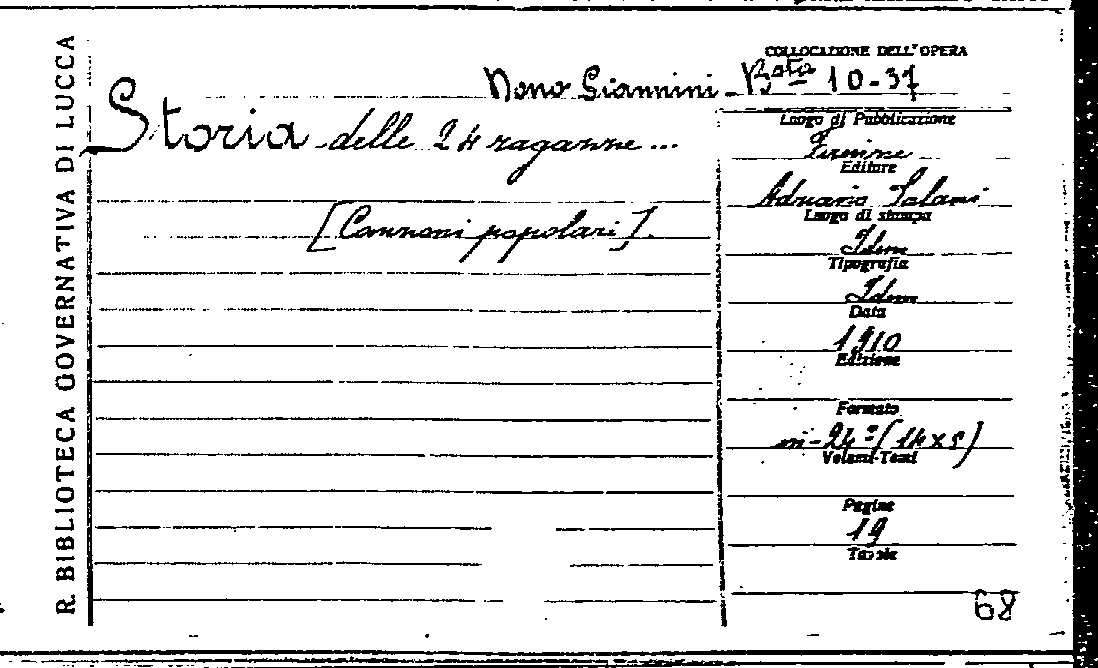 R. BIBLIOTECA GOVERNATIVA DI LUCCA
COLLOCAZIONE DELL'OPERA
Dono Giannini - Bsta 10-37
Storia delle 24 raganne...
[Canzoni popolari].
Luogo di Pubblicazione
Firenze
Editore
Adriano Salani
Luogo di stampa
Idem
Tipografia
Idem
Data
1910
Edizione
Formato
in-24º (14x9)
Volumi-Tomi
Pagine
19
Tavole
68